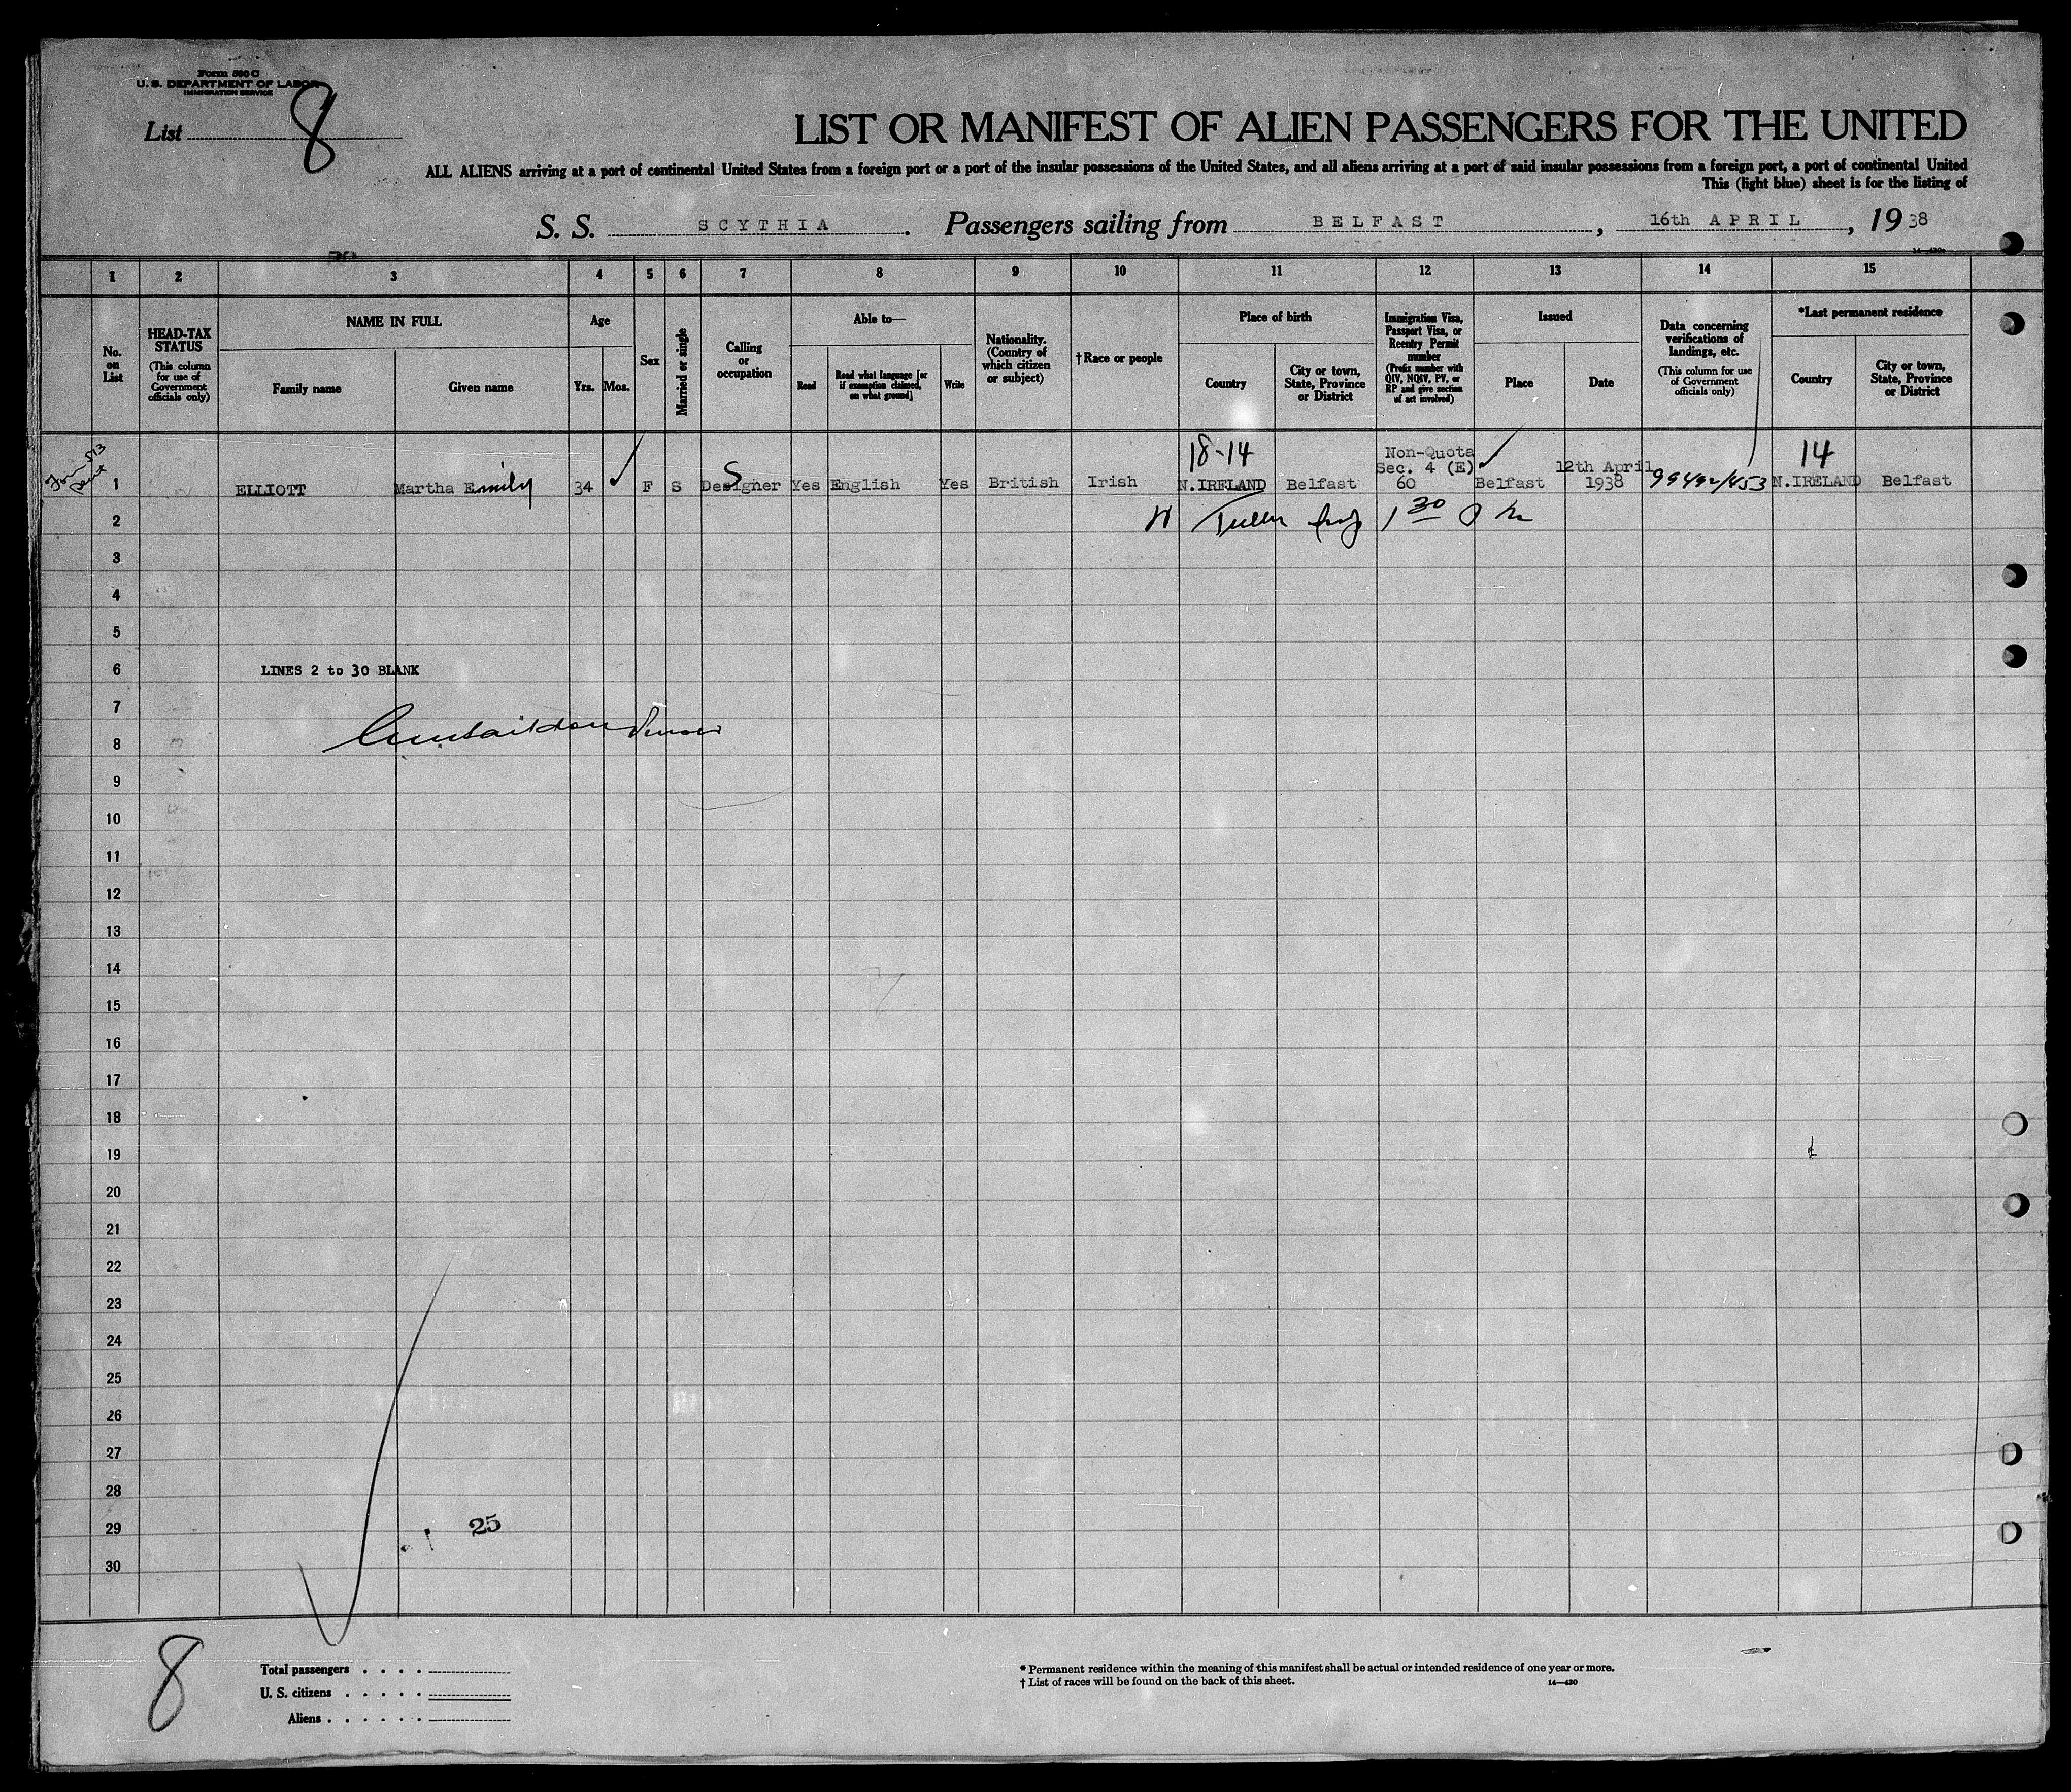 Form 500 C
U. S. DEPARTMENT OF LABOR
IMMIGRATION SERVICE
List 8
LIST OR MANIFEST OF ALIEN PASSENGERS FOR THE UNITED
ALL ALIENS arriving at a port of continental United States from a foreign port or a port of the insular possessions of the United States, and all aliens arriving at a port of said insular possessions from a foreign port, a port of continental United
This (light blue) sheet is for the listing of
S. S. SCYTHIA. Passengers sailing from BELFAST, 16th APRIL, 1938
1 2 3 4 5 6 7 8 9 10 11 12 13 14 15
No. on List
HEAD-TAX STATUS
(This column for use of Government officials only)
NAME IN FULL
Family name
Given name
Age
Yrs. Mos.
Sex
Married or single
Calling or occupation
Able to—
Read
Read what language [or if exemption claimed, on what ground]
Write
Nationality. (Country of which citizen or subject)
†Race or people
Place of birth
Country
City or town, State, Province or District
Immigration Visa, Passport Visa, or Reentry Permit number
(Prefix number with QIV, NQIV, PV, or RP and give section of act involved)
Issued
Place
Date
Data concerning verifications of landings, etc.
(This column for use of Government officials only)
*Last permanent residence
Country
City or town, State, Province or District
18-14 Non-Quota 14
Sec. 4 (E) 12th April
1 ELLIOTT Martha Emily 34 F S Designer Yes English Yes British Irish N.IRELAND Belfast 60 Belfast 1938 99492/453 N.IRELAND Belfast
2
3
4
5
6 LINES 2 to 30 BLANK
7
8
9
10
11
12
13
14
15
16
17
18
19
20
21
22
23
24
25
26
27
28
29 25
30
8
Total passengers . . . .
U. S. citizens . . . . .
Aliens . . . . . .
* Permanent residence within the meaning of this manifest shall be actual or intended residence of one year or more.
† List of races will be found on the back of this sheet.
14—430